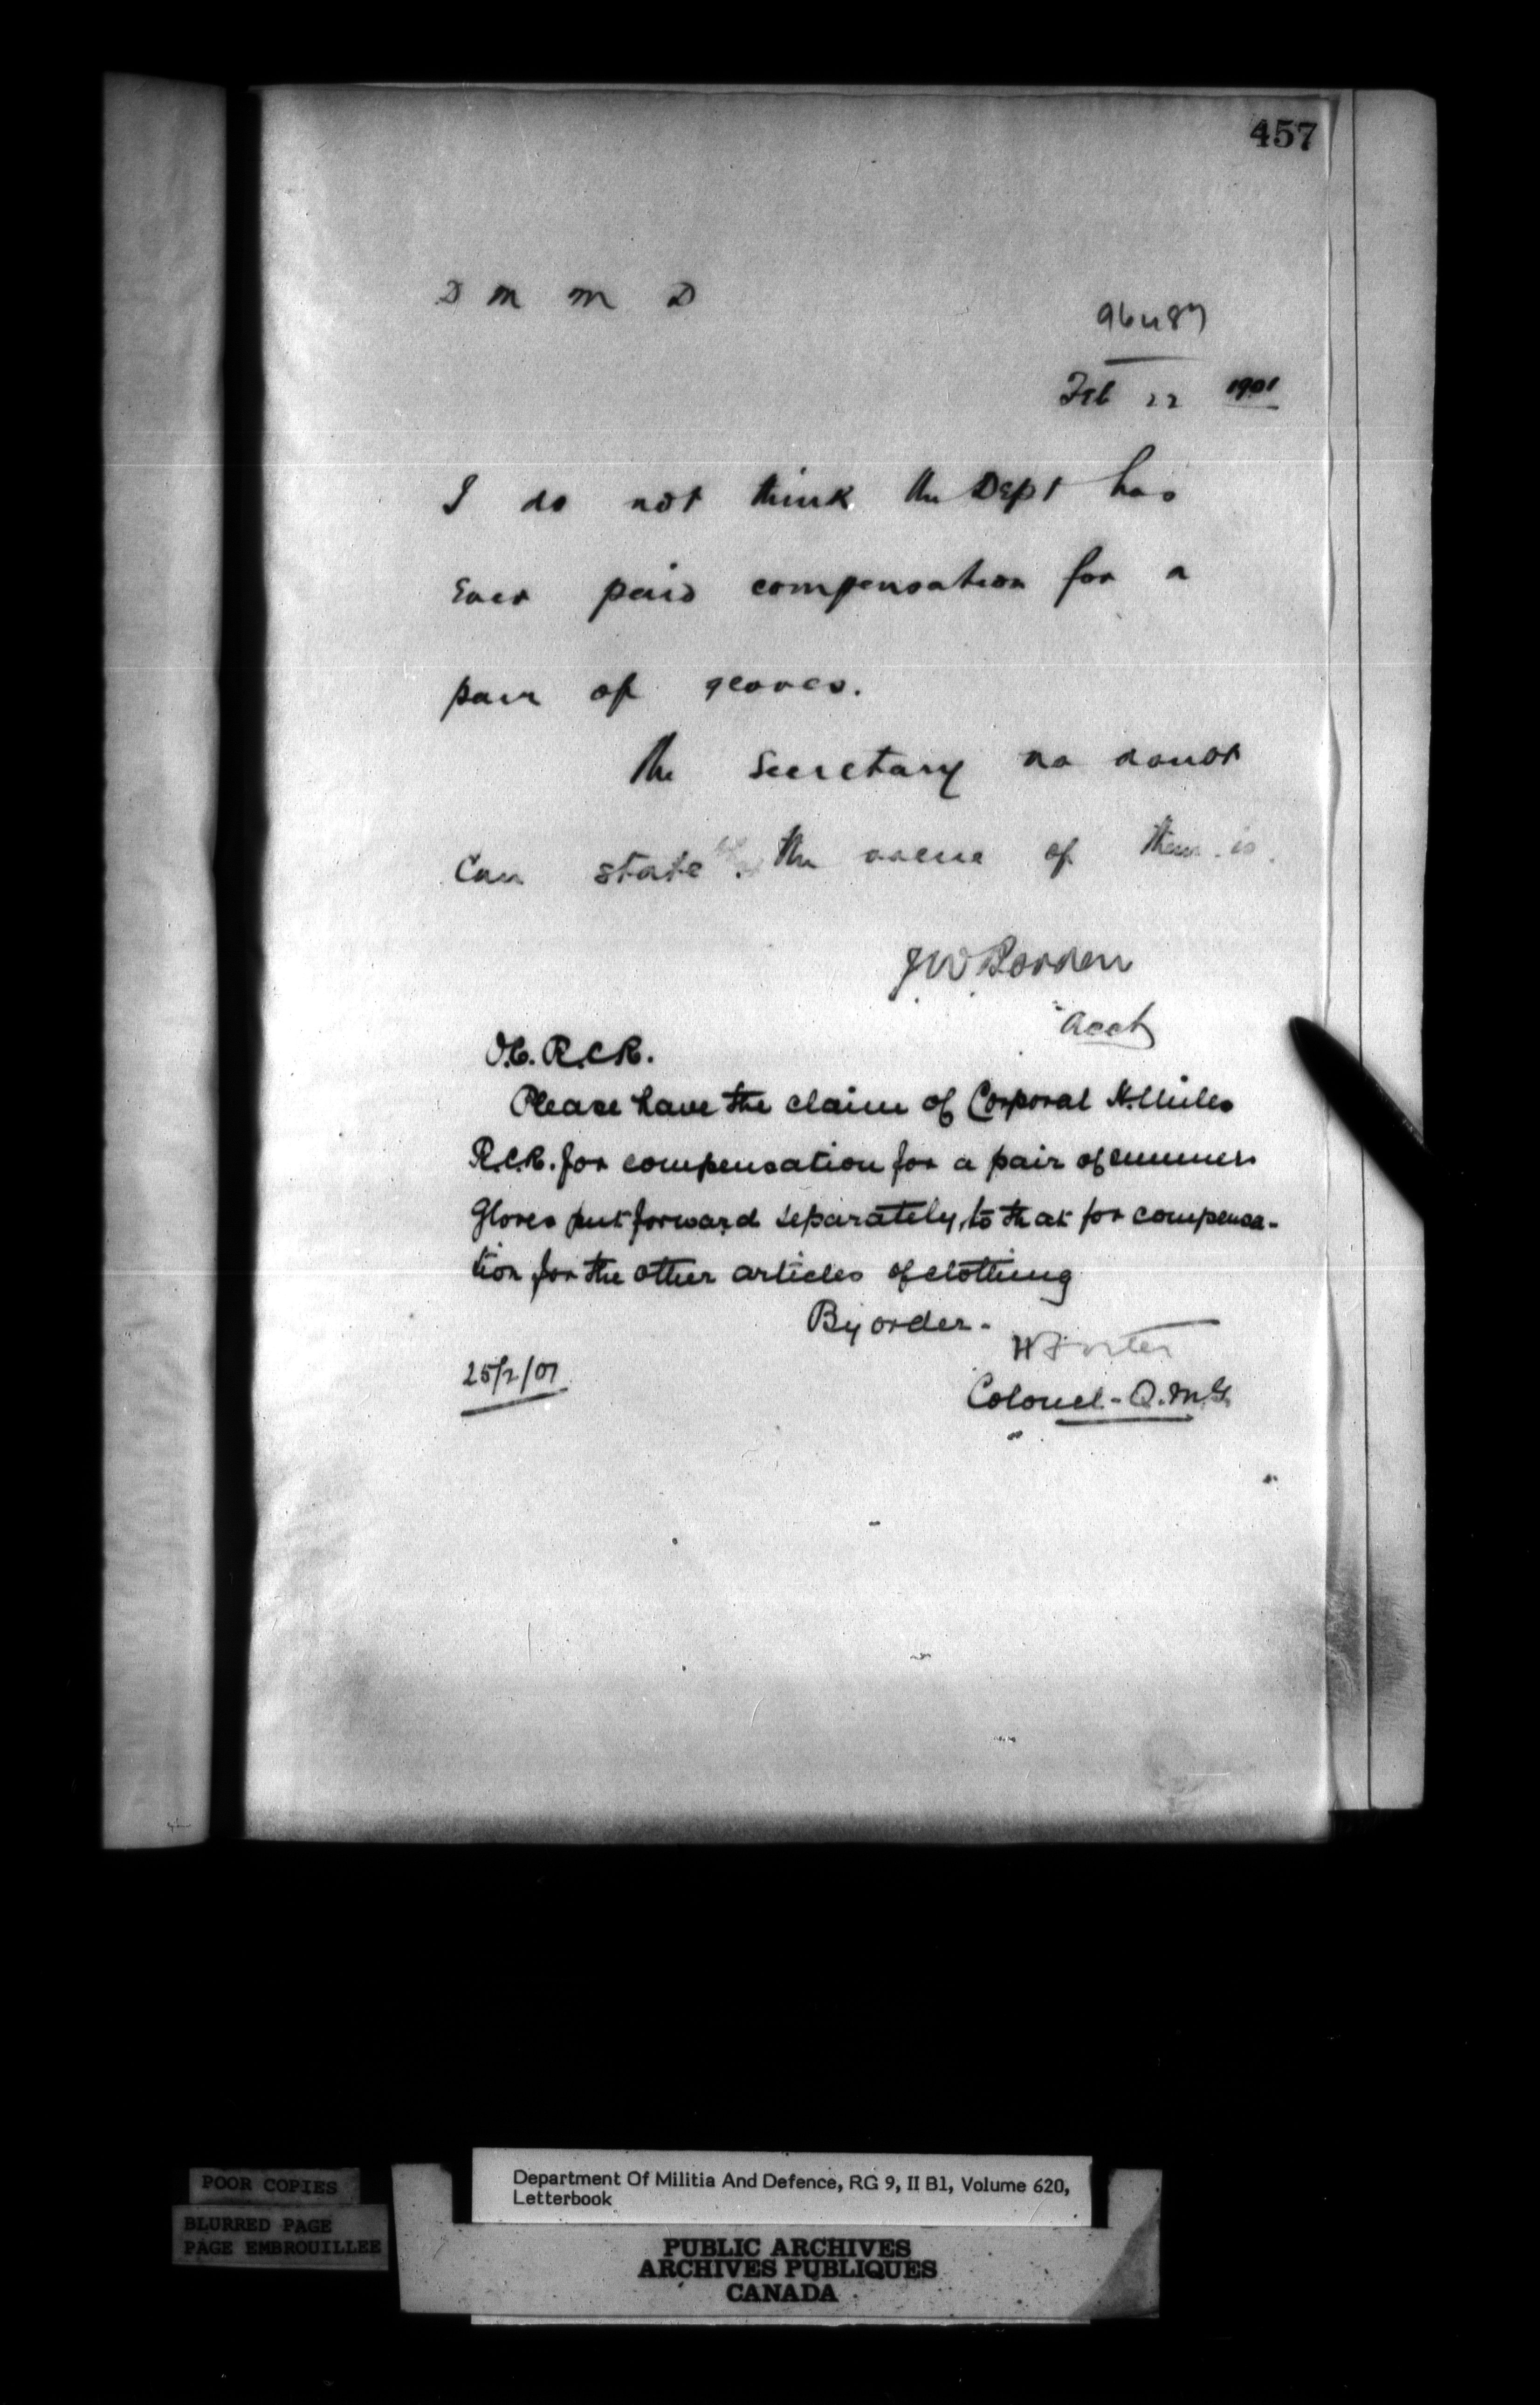 457
D M M D
96487
Feb 22 1901
I do not think the Dept has
Ever paid compensation for a
pair of gloves.
The Secretary no doubt
Can state the value of them
JW Borden
Acct
O.C. R.C.R.
Please have the claim of Corporal N. Miles
R.C.R. for compensation for a pair of summer
Gloves put forward separately, to that for compensa-
tion for the other articles of clothing
By order-
25/2/01
Colonel-Q.M.G.
POOR COPIES
BLURRED PAGE
PAGE EMBROUILLEE
Department Of Militia And Defence, RG 9, II B1, Volume 620,
Letterbook
PUBLIC ARCHIVES
ARCHIVES PUBLIQUES
CANADA